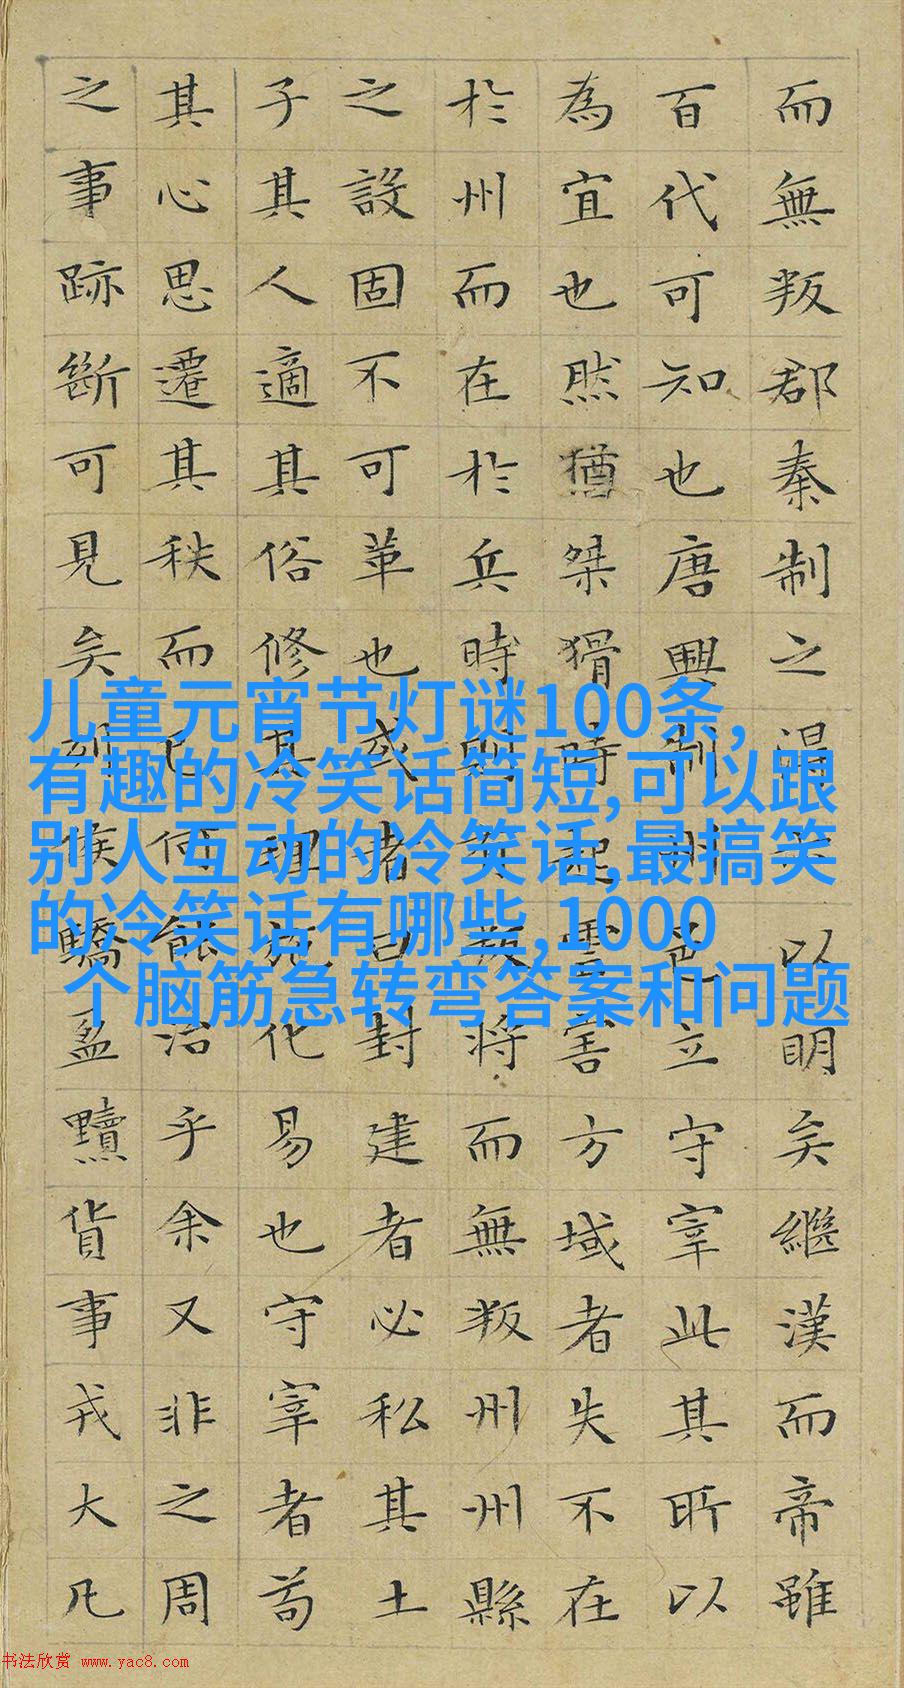 而無叛郡秦制之得亦以明矣繼漢而帝雖
百代可知也唐興制州邑立守宰此其所以
為宜也然猶桀猾時起虐害方域者失不在
於州而在於兵時則有叛將而無叛州州縣
之設固不可革也或者曰封建者必私其土
子其人適其俗修其理施化易也守宰者苟
其心思遷其秩而已何能治乎余又非之周
之事跡斷可見矣列侯驕盈黷貨事戎大凡
儿童元宵节灯谜100条,
有趣的冷笑话简短,可以跟
别人互动的冷笑话,最搞笑
的冷笑话有哪些,1000
个脑筋急转弯答案和问题
书法欣赏 www.yac8.com